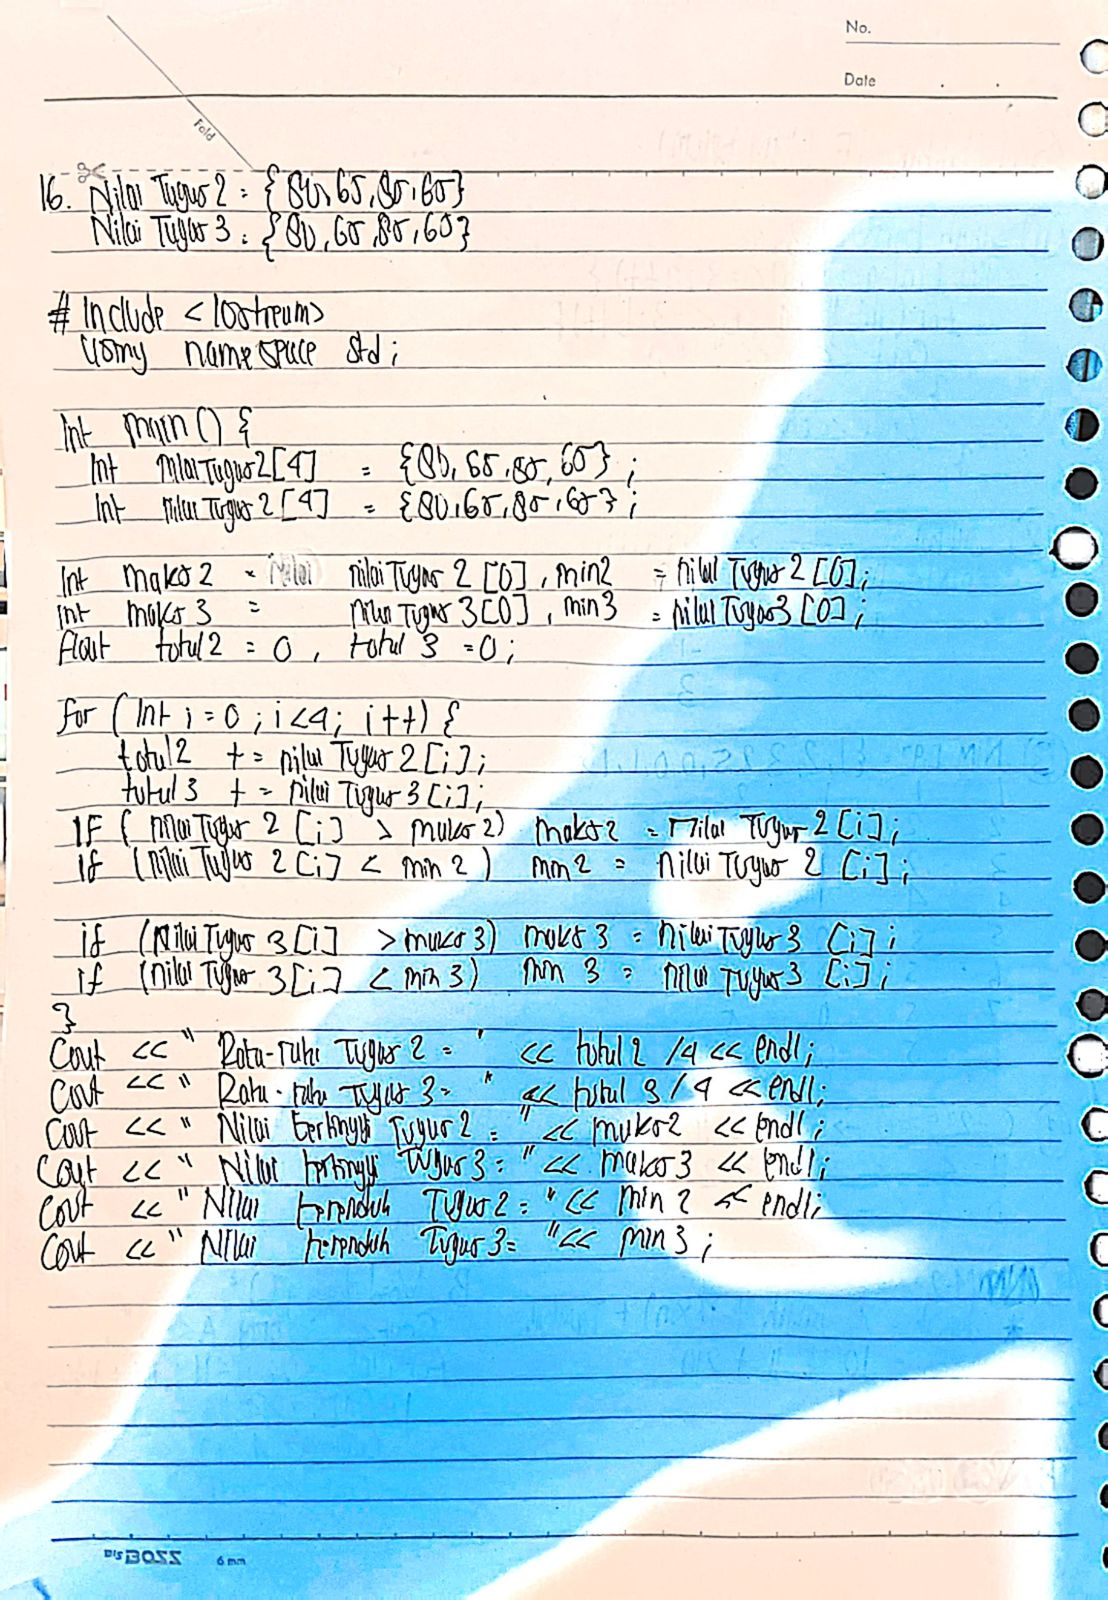 No.
Date
Fold
16. Nilai Tugas 2 = {80,65,85,65}
Nilai Tugas 3 = {80,65,85,65}
# Include <iostream>
Using namespace std;
Int main () {
Int nilaiTugas2[4] = {80,65,85,65};
Int nilaiTugas2[4] = {80,65,85,65};
Int maks2 = nilai Tugas 2 [0], min2 = nilai Tugas 2 [0];
Int maks 3 = nilai Tugas 3 [0], min 3 = nilai Tugas3 [0];
float total 2 = 0, total 3 = 0;
for (Int i = 0; i<4; i++) {
total2 += nilai Tugas 2 [i];
total 3 += nilai Tugas 3 [i];
IF (nilai Tugas 2 [i] > maks2) maks2 = nilai Tugas 2 [i];
If (nilai Tugas 2 [i] < min 2) min 2 = nilai Tugas 2 [i];
if (Nilai Tugas 3 [i] > maks 3) maks 3 = nilai Tugas 3 [i];
if (nilai Tugas 3 [i] < min 3) min 3 = nilai Tugas 3 [i];
}
Cout << " Rata-rata Tugas 2 = " << total 2 /4 << endl;
Cout << " Rata-rata Tugas 3 = " << total 3 / 4 << endl;
Cout << " Nilai tertinggi Tugas 2 = " << maks2 << endl;
Cout << " Nilai tertinggi Tugas 3 = " << maks 3 << endl;
Cout << " Nilai terendah Tugas 2 = " << min 2 << endl;
Cout << " Nilai terendah Tugas 3 = " << min 3 ;
BOSS 6 mm